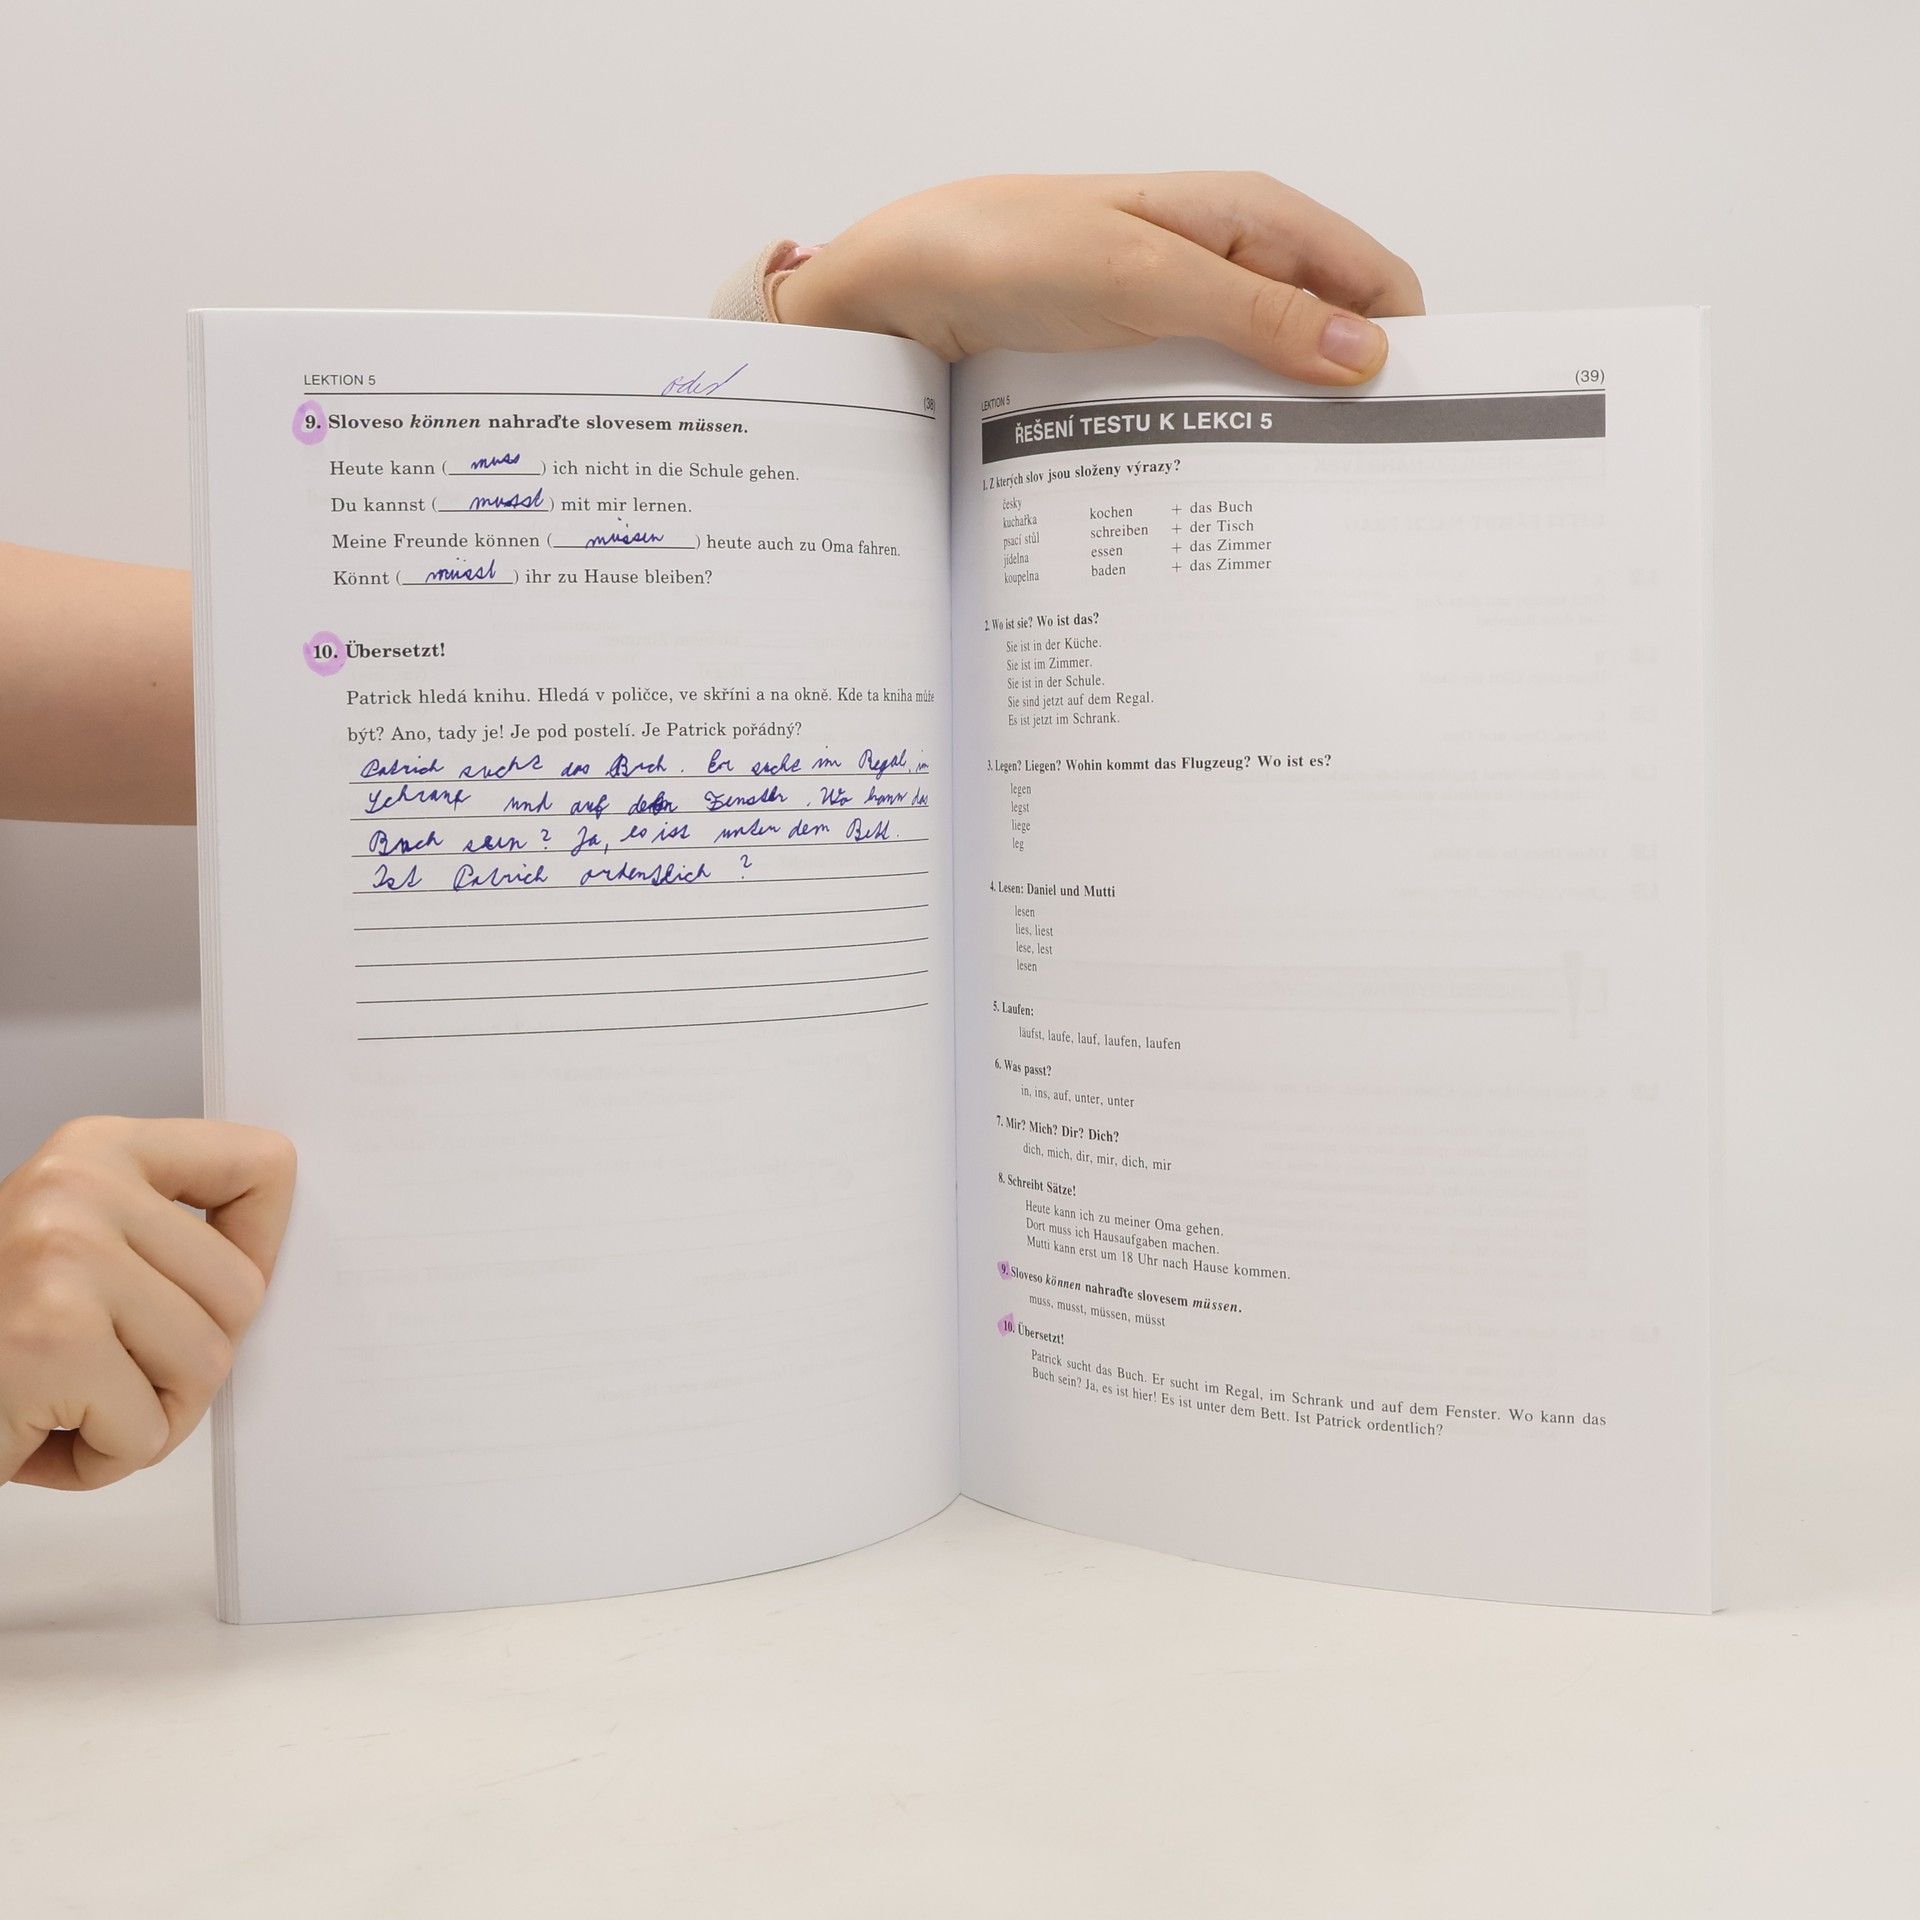 LEKTION 5
(38)
9. Sloveso können nahraďte slovesem müssen.
Heute kann ( muss ) ich nicht in die Schule gehen.
Du kannst ( musst ) mit mir lernen.
Meine Freunde können ( müssen ) heute auch zu Oma fahren.
Könnt ( müsst ) ihr zu Hause bleiben?
10. Übersetzt!
Patrick hledá knihu. Hledá v poličce, ve skříni a na okně. Kde ta kniha může
být? Ano, tady je! Je pod postelí. Je Patrick pořádný?
Patrick sucht das Buch. Er sucht im Regal, im
Schrank und auf dem Fenster. Wo kann das
Buch sein? Ja, es ist unter dem Bett.
Ist Patrick ordentlich?
LEKTION 5
(39)
ŘEŠENÍ TESTU K LEKCI 5
1. Z kterých slov jsou složeny výrazy?
česky
kuchařka kochen + das Buch
psací stůl schreiben + der Tisch
jídelna essen + das Zimmer
koupelna baden + das Zimmer
2. Wo ist sie? Wo ist das?
Sie ist in der Küche.
Sie ist im Zimmer.
Sie ist in der Schule.
Sie sind jetzt auf dem Regal.
Es ist jetzt im Schrank.
3. Legen? Liegen? Wohin kommt das Flugzeug? Wo ist es?
legen
legst
liege
leg
4. Lesen: Daniel und Mutti
lesen
lies, liest
lese, lest
lesen
5. Laufen:
läufst, laufe, lauf, laufen, laufen
6. Was passt?
in, ins, auf, unter, unter
7. Mir? Mich? Dir? Dich?
dich, mich, dir, mir, dich, mir
8. Schreibt Sätze!
Heute kann ich zu meiner Oma gehen.
Dort muss ich Hausaufgaben machen.
Mutti kann erst um 18 Uhr nach Hause kommen.
9. Sloveso können nahraďte slovesem müssen.
muss, musst, müssen, müsst
10. Übersetzt!
Patrick sucht das Buch. Er sucht im Regal, im Schrank und auf dem Fenster. Wo kann das
Buch sein? Ja, es ist hier! Es ist unter dem Bett. Ist Patrick ordentlich?